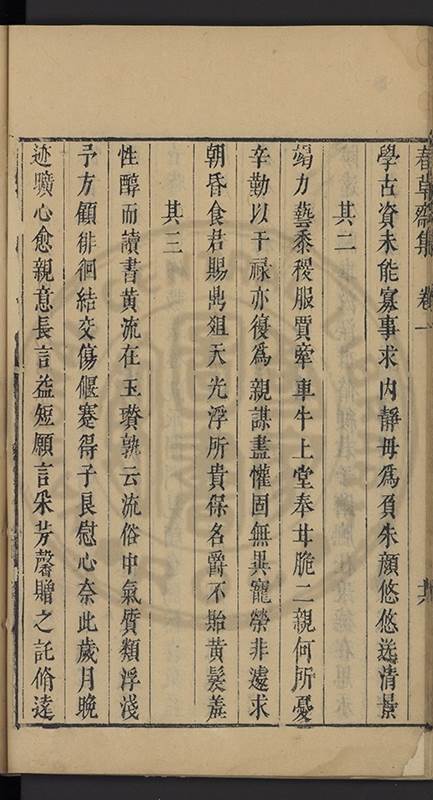 春草齋集 卷一 六
學古資未能寡事求内靜毋爲負朱顔悠悠送清景
其二
竭力藝黍稷服賈牽車牛上堂奉甘脆二親何所憂
辛勤以干禄亦復爲親謀盡懽固無異寵榮非遠求
朝昏食君賜鼎俎天光浮所貴保名爵不貽黄髮羞
其三
性醇而讀書黄流在玉瓚孰云流俗中氣質類浮淺
予方顧徘徊結交傷偃蹇得子良慰心奈此歲月晚
迹曠心愈親意長言益短願言采芳馨贈之託脩遠